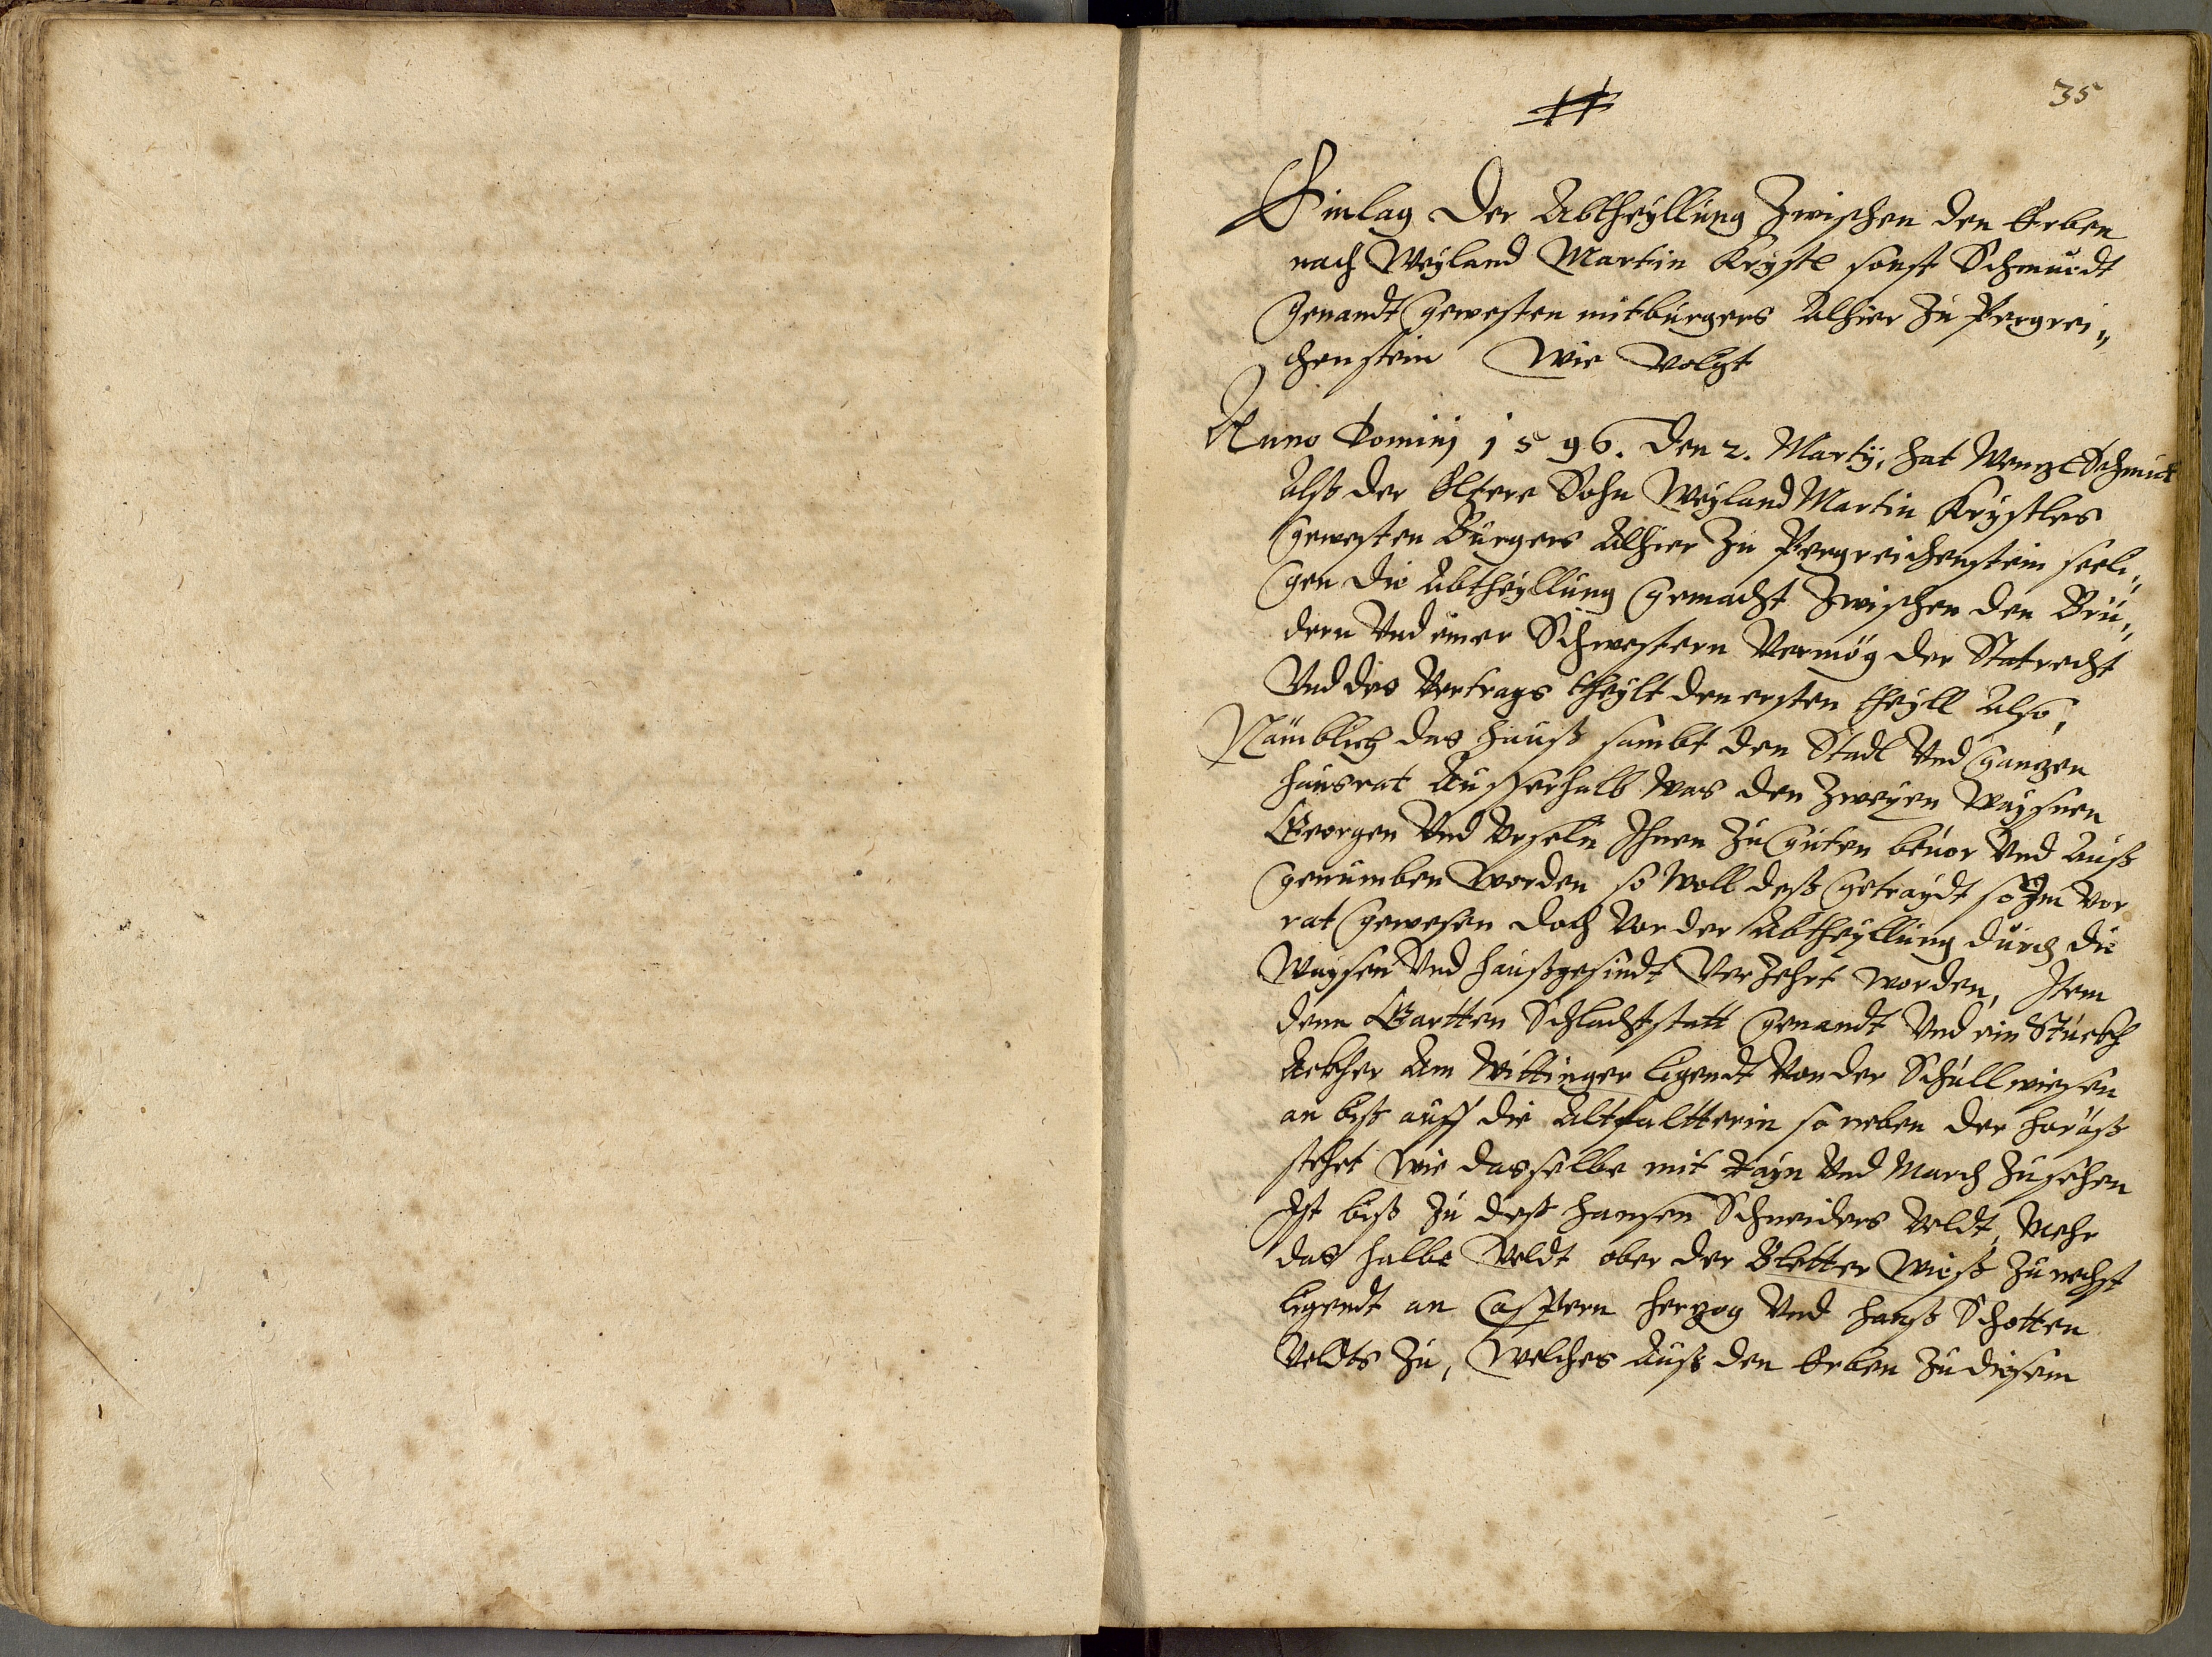 35
Einlag der Abtheyllung Zwischen den Erben
nach Weyland Martin Krystl sonst Schmidt
genandt gewesten mitburgers Alhier Zu Pergrei„
chenstein Wie Volgt
Anno Dominj 1596. den 2. Martÿ, hat Wenzl Schmidt
Alß der Eltere Sohn Weyland Martin Krystles
gewesten Burgers Alhier Zu Pergreichenstein seeli„
gen die Abtheyllung gemacht Zwischen den Brü„
dern Vnd einer Schwestern Vermög der Statrecht
Vnd des Vertrags theylt den ersten theyll Also,
Nämblich das hauß sambt den Stadl Vnd ganzen
hausrat Ausserhalb was den Zweyen Waysnen
Georgen Vnd Urseln Ihnen Zu guten beuor Vnd Auß
genumben worden so woll deß getraydt so Im Vor
rat gewesen doch Vor der Abtheyllung durch die
Waysen Vnd haußgesindt Verzehrt worden, Item
denn Gartten Schlachtstatt genandt Vnd ein Stuckh
Ackher Am Wittinger ligendt Von der Schullwiesen
an biß auff die Altfaltterin so neben der
stehet wie dasselbe mit Rayn Vnd March Zusehen
Ist biß Zu deß hansen Schneiders Veldt, Mehr
das halbe Veldt ober der Bletter Wieß Zu nechst
ligendt an Caspern herzog Vnd hanß Schotten
Veldts Zu, Welches Auß den Erben Zu diesem